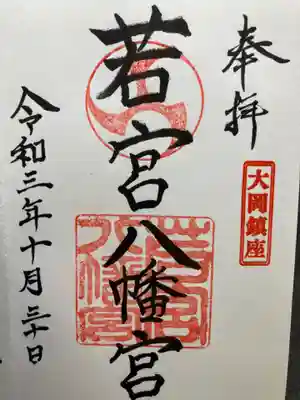 奉拝
大岡鎮座
若宮八幡宮
若宮八幡宮
令和三年十月三十日